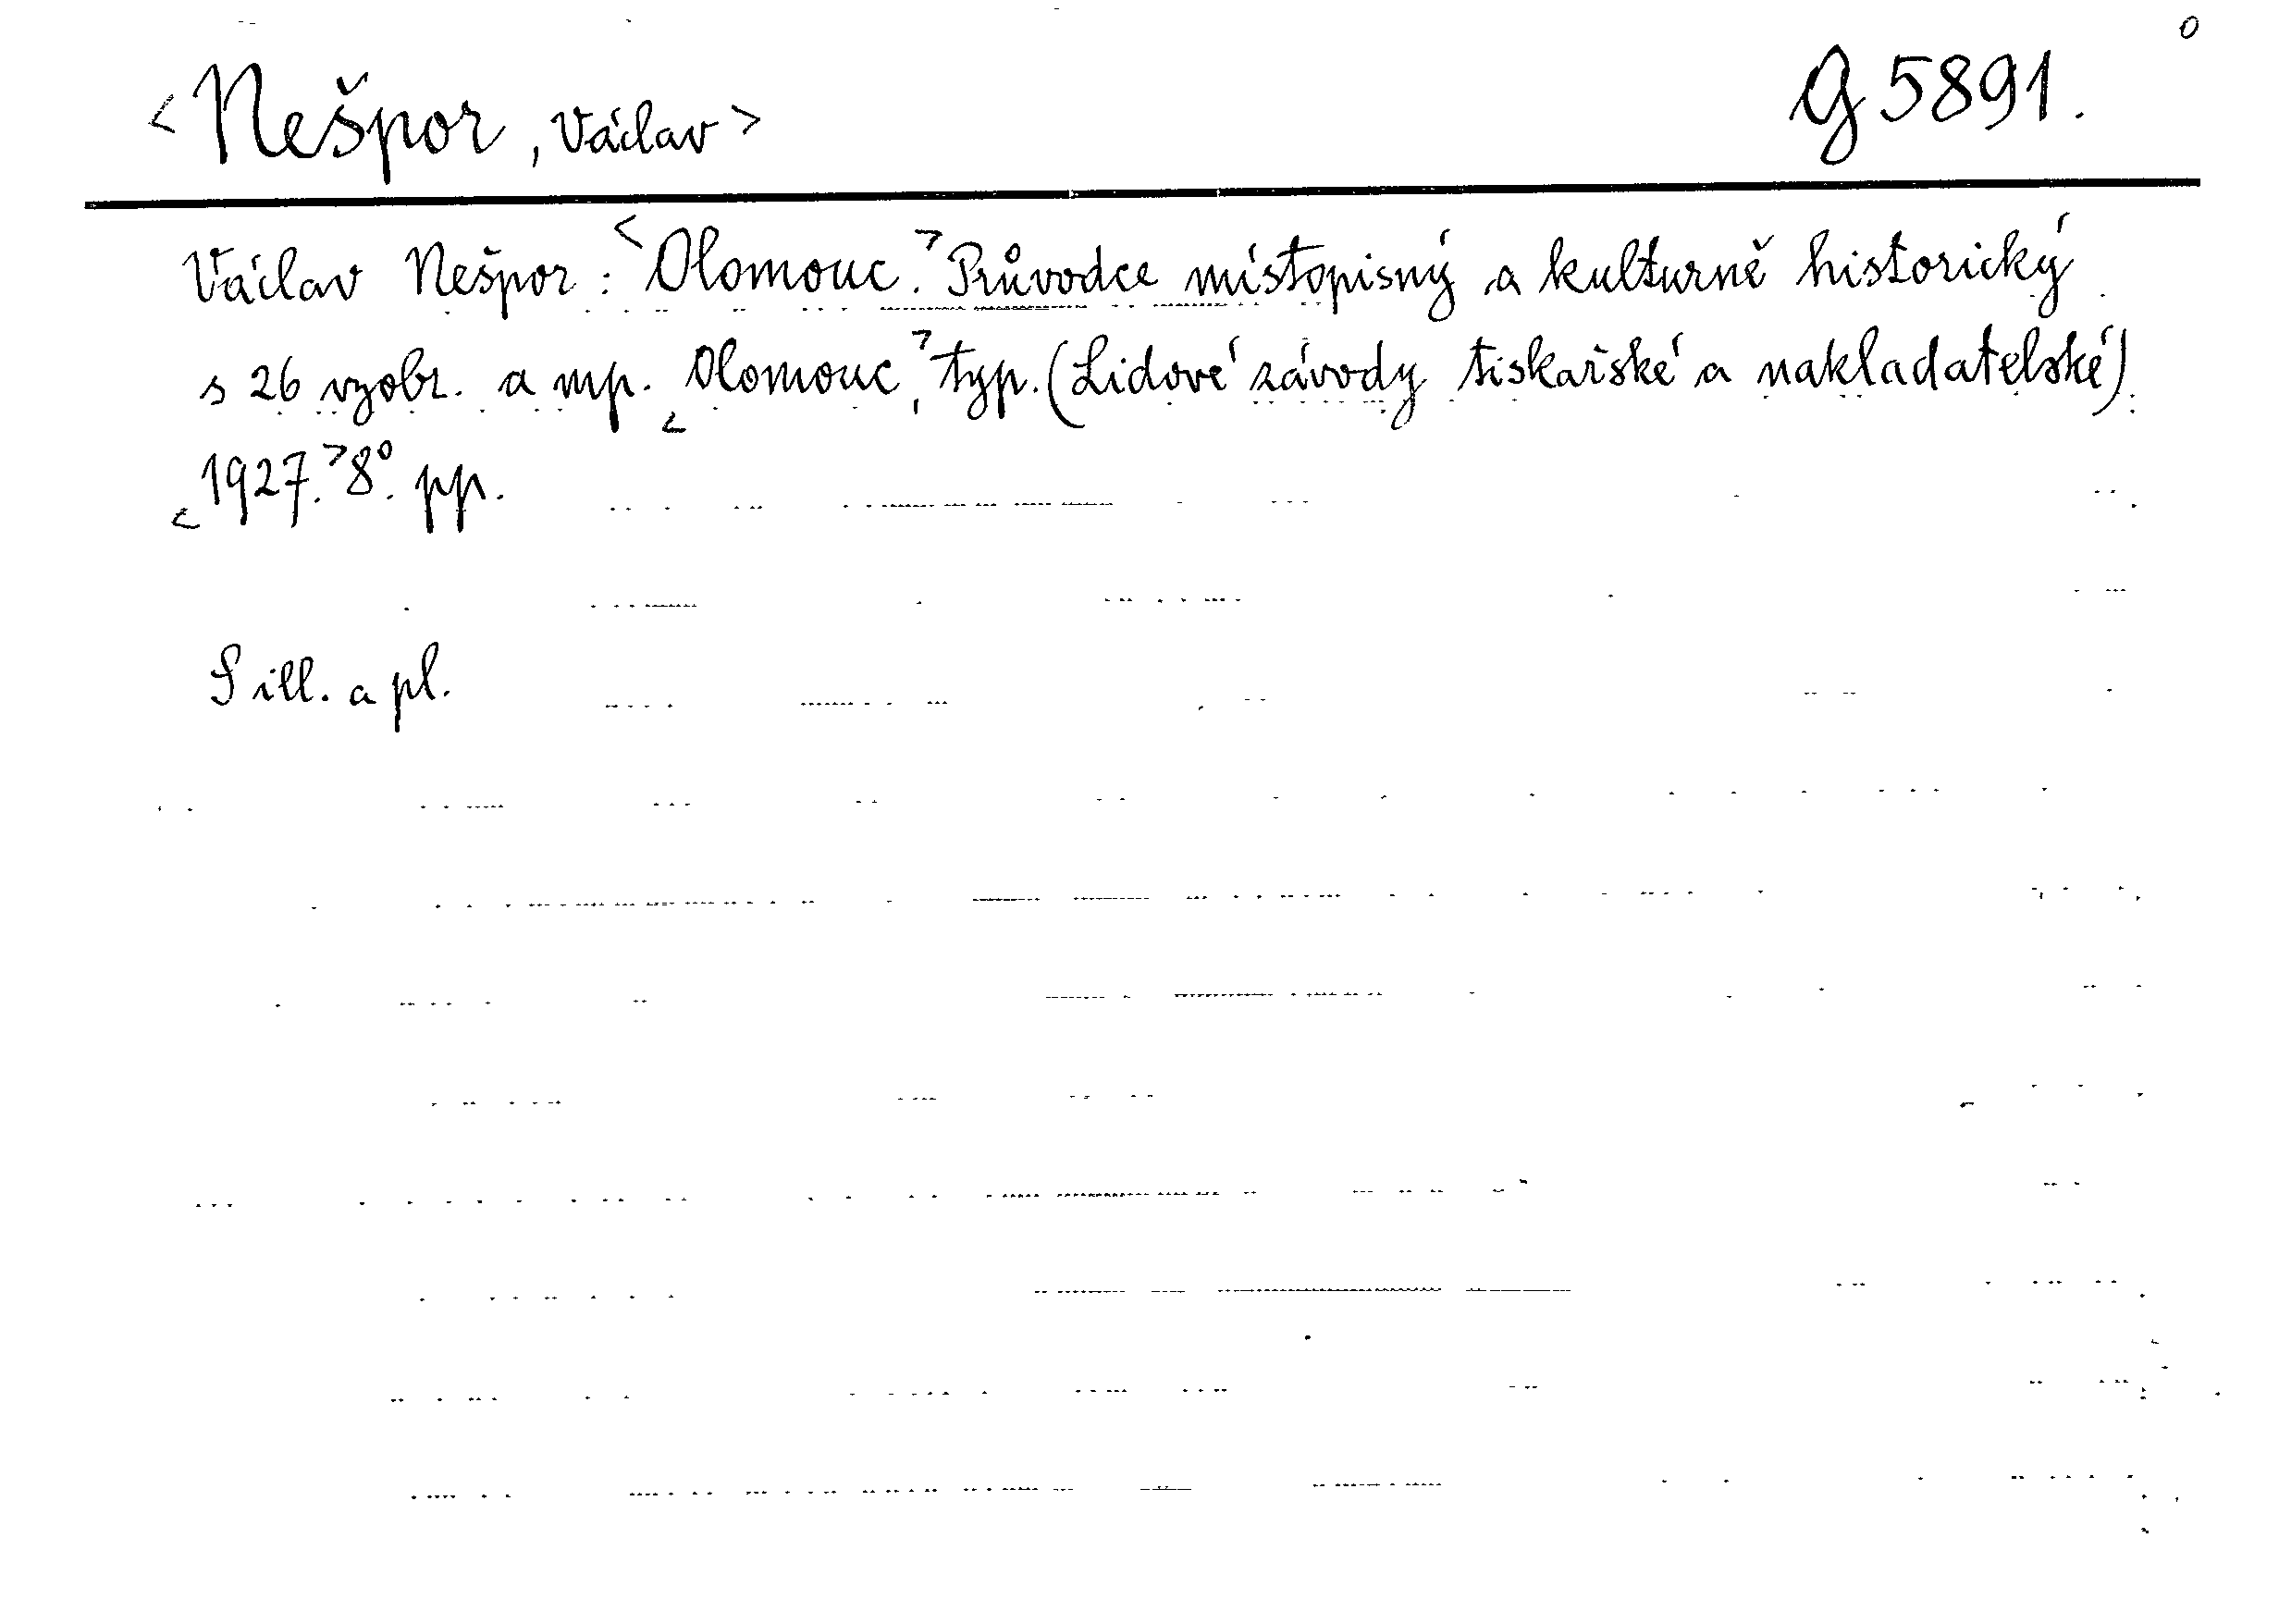 0
<Nešpor, Václav> G 5891.
Václav Nešpor: <Olomouc.> Průvodce místopisný a kulturně historický
s 26 vyobr. a mp. <Olomouc,> typ. (Lidové závody tiskařské a nakladatelské)
<1927.> 8°. pp.
S ill. a pl.